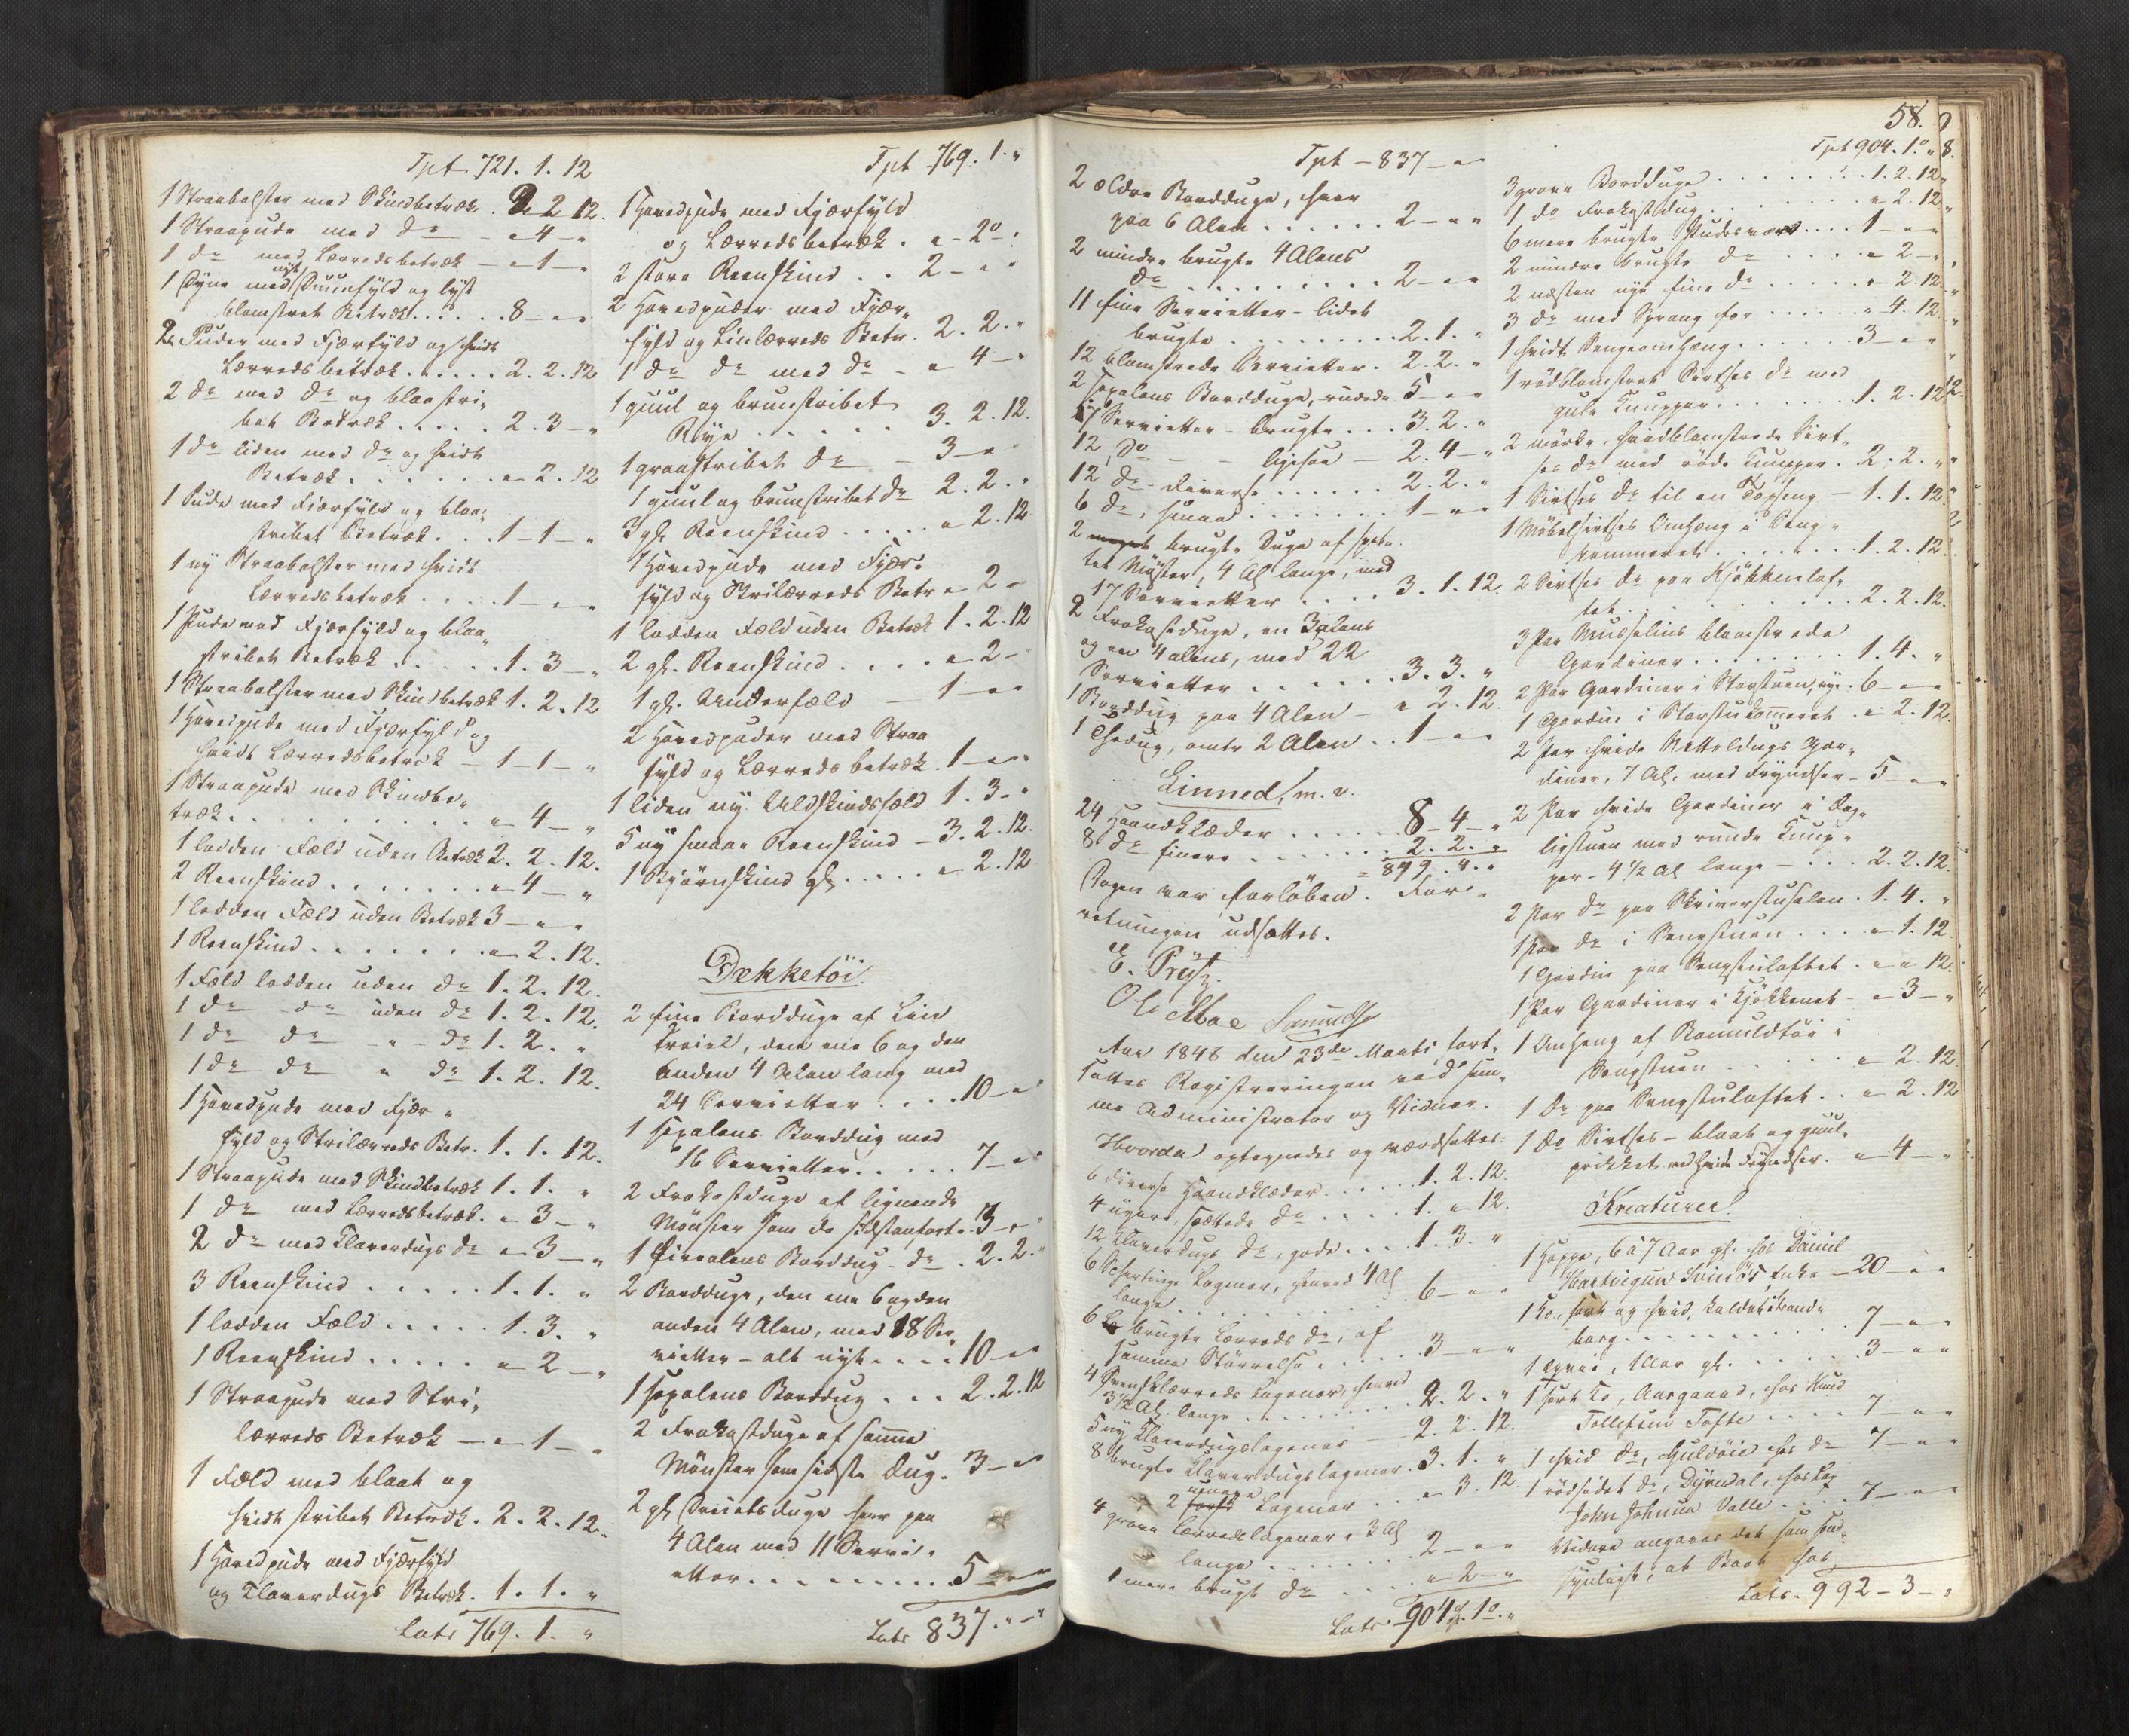 Tpt 721. 1. 12
1 Straabolster med Skindbetræk . 2 2 12.
1 Straapude med do - " 4 - "
1 do med Lærredsbetræk - " 1 - "
1 Dyne med nyt Duunfyld og lyst
blomstret Betræk . . . . . 8 - " "
2 Puder med Fjærfyld og hvidt
Lærredsbetræk . . . . . 2. 2. 12
2 do med do og blaastri„
bet Betræk . . . . . 2. 3 - "
1 do liden med do og hvidt
Betræk . . . . . . " 2. 12
1 Pude med Fjærfyld og blaa„
stribet Betræk . . . 1 - 1 - "
1 ny Straabolster med hvidt
Lærredsbetræk . . . . 1 - " "
1 Pude med Fjærfyld og blaa„
stribet Betræk . . . . . 1. 3 - "
1 Straabolster med Skindbetræk 1. 2. 12
1 Hovedpude med Fjærfyld og
hvidt Lærredsbetræk - 1 - 1 - "
1 Straapude med Skindbe„
træk . . . . . . . . . " 4 - "
1 lodden Fæld uden Betræk 2. 2. 12.
2 Reenskind . . . . . . . " 4 - "
1 lodden Fæld uden Betræk 3 - " "
1 Reenskind . . . . . . . " 2. 12.
1 Fæld lodden uden do 1. 2. 12.
1 do - do uden do 1. 2. 12.
1 do do - " - do 1. 2. "
1 do do " do 1. 2. 12.
1 Hovedpude med Fjær„
fyld og Strilærreds Betr. 1. 1. 12.
1 Straapude med Skindbetræk 1. 1. "
1 do med Lærredsbetræk. " 3 - "
2 do med Klaverdugs do " 3 - "
3 Reenskind . . . . . 1. 1. "
1 lodden Fæld . . . . . 1. 3. "
1 Reenskind . . . . . " 2 - "
1 Straapude med Stri„
lærreds Betræk - " 1 - "
1 Fæld med blaat og
hvidt stribet Betræk. 2. 2. 12.
1 Hovedpude med Fjærfyld
og Klaverdugs Betræk. 1. 1. "
Lats 769. 1. "
Tpt 769. 1. "
1 Hovedpude med Fjærfyld
og Lærredsbetræk . " - 2 - "
2 store Reenskind . . 2 - " "
2 Hovedpuder med Fjær„
fyld og Linlærreds Betr. 2. 2. "
1 do do med do - " 4 - "
1 guul og bruunstribet
Rye . . . . . . 3. 2. 12.
1 graastribet do - 3 - "
1 guul og bruunstribet do 2. 2. "
3 gl. Reenskind . . . . . " 2. 12
1 Hovedpude med Fjær„
fyld og Strilærreds Betr " 2 -
1 lodden Fæld uden Betræk 1. 2. 12
2 gl. Reenskind . . . . " 2 -
1 gl. Underfæld - 1 - " "
2 Hovedpuder med Straa
fyld og Lærredsbetræk . 1 - " "
1 liden ny Uldskindsfæld 1. 3. "
5 ny smaae Reenskind - 3. 2. 12.
1 Bjørnskind gl. . . . . " 2. 12
Dækketöi.
2 fine Bordduge af Lin
Dreiel, den ene 6 og den
anden 4 Alen lang med
24 Servietter . . . . 10 - "
1 sexalens Borddug med
16 Servietter . . . . . 7 - "
2 Frokostduge af lignende
Mönster som de sidstanførte . 3 - "
1 fiirealens Borddug - do . 2. 2. "
2 Bordduge, den ene 6 og den
anden 4 Alen, med 18 Ser„
vietter - alt nyt . . . . 10 - "
1 sexalens Borddug . . . 2. 2. 12
2 Frokostduge af samme
Mönster som sidste Dug. 3 - "
2 gl. duge hver paa
4 Alen med 11 Servi„
etter . . . . . . . . 5 - " "
Lats 837. " - "
Tpt - 837 - "
2 ældre Bordduge, hver
paa 6 Alen . . . . . . 2 - " "
2 mindre brugte 4 Alens
do . . . . . . . . . 2 - " "
11 fine Servietter - lidet
brugte . . . . . . . . 2. 1. "
12 blomstrede Servietter. 2. 2. "
2 sexalens Bordduge, rudede 5 - " "
17 Servietter - brugte . . . 3. 2. "
12, do - - ligesaa - 2. 4 - "
12 do - diverse . . . . . 2. 2. "
6 do, smaa . . . . . . . 1 - " "
2 meget brugte Duge af
tet Mönster, 4 Al lange, med
17 Servietter . . . . 3. 1. 12.
2 Frokostduge, en 3 alens
og en 4 alens, med 22
Servietter . . . . . . 3. 3. "
1 Borddug paa 4 Alen - " 2. 12.
1 Thedug, omtr 2 Alen . . 1 - " "
Linned, m. v.
24 Haandklæder . . . . . 8 - 4 - "
8 do finere . . . . . . . 2. 2. "
= 879. 4. "
Dagen var forlöben. For„
retningen udsættes.
E. Prÿtz.
Ole Moe Samuels
Aar 1848 den 23de Marts fort„
sattes Registreringen ved sam„
me Administrator og Vidner.
Hvorda optegnedes og værdsattes:
6 diverse Haandklæder . . . . . 1. 2. 12.
4 nyere, spættede do . . . . 1. " 12.
12 Klaverdugs do, gode . . . 1. 3. "
6 Schertings Lagener, henved 4 Al
lange . . . . . . . . . . 6 - " "
6 brugte Lærreds do, af
samme Störrelse . . . . . 3 - " "
4 Strilærreds Lagener, henved
3 1/2 Al. lange . . . . . . . . 2. 2. "
5 ny Klaverdugslagener - 2. 2. 12.
8 brugte Klaverdugslagener. 3. 1. "
2 Lagener . . . " 3. 12.
4 grove Lærredslagener, 3 Al
lange . . . . . . . . 2 - " "
1 mere brugt do . . . . . " 2 - "
Lats. 904. 1. "
58.
Tpt 904. 1. " 8.
3 grove Bordduge . . . . . . . 1. 2. 12.
1 do Frokostdug . . . . . . . . " 2. 12.
6 mere brugte Pudevaar . . . . 1 - " "
2 mindre brugte do . . . . " 2 - "
2 næsten nye fine do . . . . . " 2. 12.
3 do med Sprang for . . . . . . " 4. 12
1 hvidt Sengeomhæng . . . . . . 3 - " "
1 rödblomstret Sirtses do med
gule Knupper . . . . . . . 1. 2. 12
2 mörke, hvidblomstrede Sirt„
ses do med röde Knupper . 2. 2. "
1 Sirtses do til en Topseng - 1. 1. 12
1 Möbelsirtses Omhæng i Seng„
kammeret . . . . . . . 1. 2. 12.
2 Sirtses do paa Kjökkenlof„
tet . . . . . . . . . . 2. 2. 12.
3 Par Musselins blomstrede
Gardiner . . . . . . . . . 1. 4. "
2 Par Gardiner i Storstuen, nye . 6 - " "
1 Gardin i Storstukammeret . " 2. 12
2 Par hvide Netteldugs Gar„
diner, 7 Al. med Fryndser - 5 - "
2 Par hvide Gardiner i Dag„
ligstuen med runde Knup„
per - 4 1/2 Al lange - . . . 2. 2. 12.
2 Par do paa Skriverstusalen . 1. 4. "
1 Par do i Sengstuen . . . . " 1. 12
1 Gardin paa Sengstuloftet . " " 12.
1 Par Gardiner i Kjökkenet - " 3 - "
1 Omhæng af Bomuldstöi i
Sengstuen . . . . . . . " 2. 12.
1 do paa Sengstuloftet . . " 2. 12
1 do Sirtses - blaat og guul„
prikket med hvide Fryndser. " 4 - "
Kreaturer.
1 Hoppe, 6 à 7 Aar gl. hos Daniel
Enke - 20 - " "
1 Ko, sort og hvid, kaldet Strand„
borg . . . . . . . . . . 7 - " "
1 Qvie, 1 Aar gl. . . . . . . 3 - " "
1 sort Ko, Aargaas, hos Knud
Tollefsen Tofte . . . . 7 - " "
1 hvid do, Guldöie hos do 7 - " "
1 rödsidet do, Dyredal, hos
John Johnsen Valle . . . . 7 - " "
Videre angaves det som sand„
synligt, at Baat hos
Lats. 992 - 3 - "